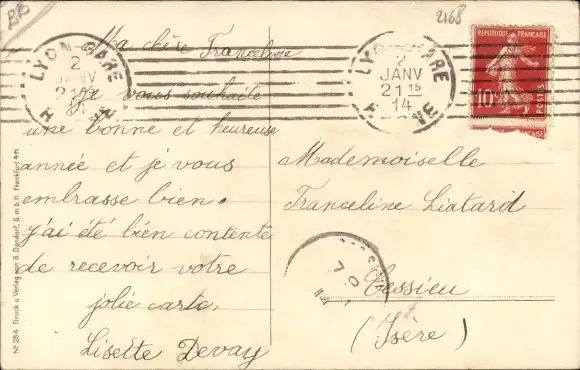 2168
LYON-GARE
2
JANV
21 15
14
RHÔNE
RÉPUBLIQUE FRANÇAISE
10c
POSTES
Ma chère Franceline
Je vous souhaite
une bonne et heureuse
année et je vous
embrasse bien.
j'ai été bien contente
de recevoir votre
jolie carte.
Lisette Devay
Mademoiselle
Franceline Liatard
Cessieu
(Isère)
No 284 Druck u. Verlag von B. Dondorf, G. m. b. H. Frankfurt a/M.